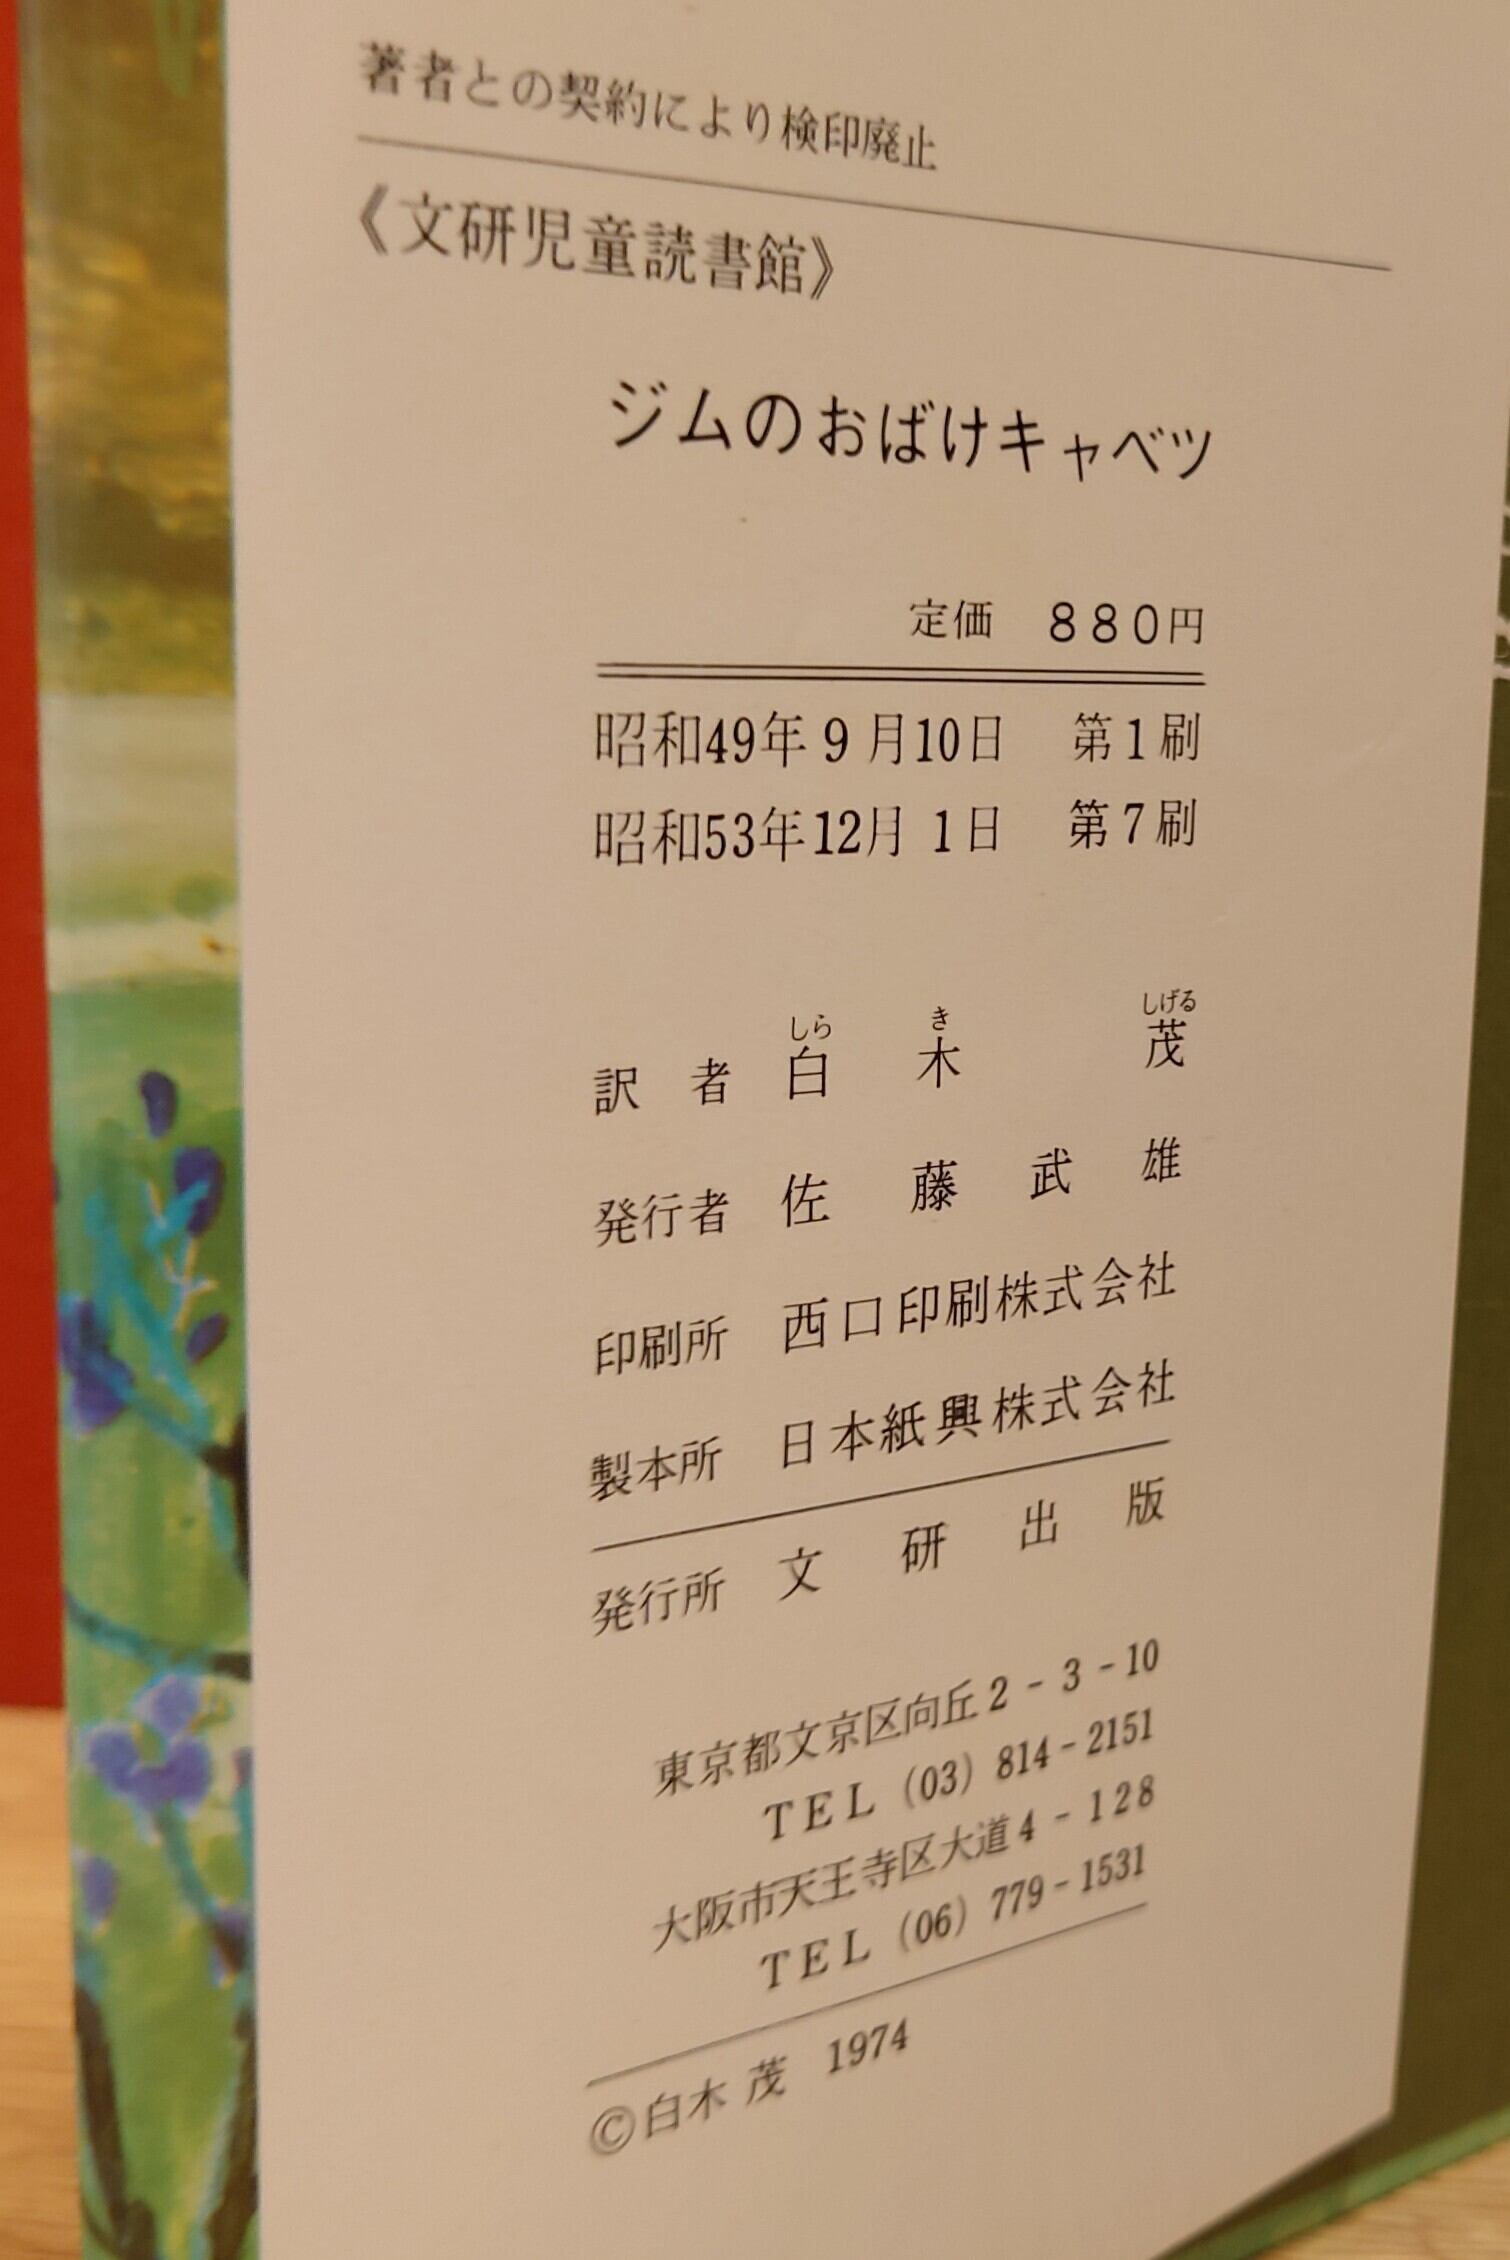 著者との契約により検印廃止
《文研児童読書館》
ジムのおばけキャベツ
定価 880円
昭和49年9月10日 第1刷
昭和53年12月1日 第7刷
しら き しげる
訳者 白木 茂
発行者 佐藤武雄
印刷所 西口印刷株式会社
製本所 日本紙興株式会社
発行所 文研出版
東京都文京区向丘2-3-10
TEL (03) 814-2151
大阪市天王寺区大道4-128
TEL (06) 779-1531
©白木 茂 1974